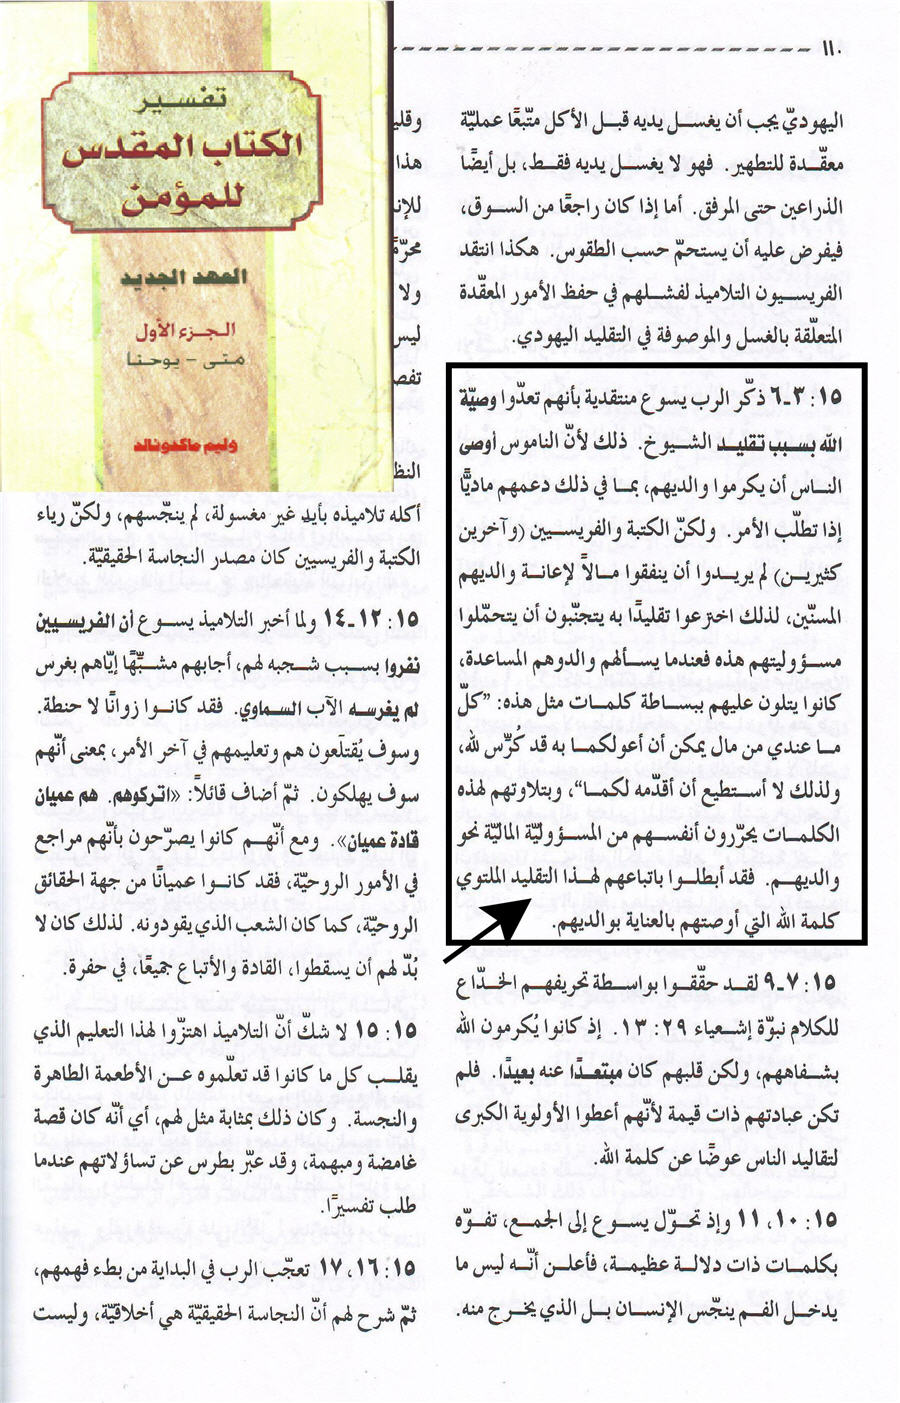 ١١٠
تفسير
الكتاب المقدس
للمؤمن
العهد الجديد
الجزء الأول
متى - يوحنا
وليم ماكدونالد
اليهوديّ يجب أن يغسل يديه قبل الأكل متّبعًا عمليّة
معقّدة للتطهير. فهو لا يغسل يديه فقط، بل أيضًا
الذراعين حتى المرفق. أما إذا كان راجعًا من السوق،
فيفرض عليه أن يستحمّ حسب الطقوس. هكذا انتقد
الفريسيون التلاميذ لفشلهم في حفظ الأمور المعقّدة
المتعلّقة بالغسل والموصوفة في التقليد اليهودي.
١٥: ٣ـ٦ ذكّر الرب يسوع منتقدية بأنهم تعدّوا وصيّة
الله بسبب تقليد الشيوخ. ذلك لأنّ الناموس أوصى
الناس أن يكرموا والديهم، بما في ذلك دعمهم ماديًّا
إذا تطلّب الأمر. ولكنّ الكتبة والفريسيين (وآخرين
كثيرين) لم يريدوا أن ينفقوا مالاً لإعانة والديهم
المسنّين، لذلك اخترعوا تقليدًا به يتجنّبون أن يتحمّلوا
مسؤوليتهم هذه فعندما يسألهم والدوهم المساعدة،
كانوا يتلون عليهم ببساطة كلمات مثل هذه: ”كلّ
ما عندي من مال يمكن أن أعولكما به قد كُرّس لله،
ولذلك لا أستطيع أن أقدّمه لكما“، وبتلاوتهم لهذه
الكلمات يحرّرون أنفسهم من المسؤوليّة الماليّة نحو
والديهم. فقد أبطلوا باتباعهم لهذا التقليد الملتوي
كلمة الله التي أوصتهم بالعناية بوالديهم.
١٥: ٧ـ٩ لقد حقّقوا بواسطة تحريفهم الخدّاع
للكلام نبوّة إشعياء ٢٩: ١٣. إذ كانوا يُكرمون الله
بشفاههم، ولكن قلبهم كان مبتعدًا عنه بعيدًا. فلم
تكن عبادتهم ذات قيمة لأنّهم أعطوا الأولوية الكبرى
لتقاليد الناس عوضًا عن كلمة الله.
١٥: ١٠، ١١ وإذ تحوّل يسوع إلى الجمع، تفوّه
بكلمات ذات دلالة عظيمة، فأعلن أنّه ليس ما
يدخل الفم ينجّس الإنسان بل الذي يخرج منه.
هذا
ولا
ليس
أكله تلاميذه بأيدٍ غير مغسولة، لم ينجّسهم، ولكنّ رياء
الكتبة والفريسيين كان مصدر النجاسة الحقيقيّة.
١٥: ١٢ـ١٤ ولما أخبر التلاميذ يسوع أن الفريسيين
نفروا بسبب شجبه لهم، أجابهم مشبّهًا إيّاهم بغرس
لم يغرسه الآب السماوي. فقد كانوا زوانًا لا حنطة.
وسوف يُقتلَعون هم وتعليمهم في آخر الأمر، بمعنى أنّهم
سوف يهلكون. ثمّ أضاف قائلاً: «اتركوهم. هم عميان
قادة عميان». ومع أنّهم كانوا يصرّحون بأنّهم مراجع
في الأمور الروحيّة، فقد كانوا عميانًا من جهة الحقائق
الروحيّة، كما كان الشعب الذي يقودونه. لذلك كان لا
بُدّ لهم أن يسقطوا، القادة والأتباع جميعًا، في حفرة.
١٥: ١٥ لا شكّ أنّ التلاميذ اهتزّوا لهذا التعليم الذي
يقلب كل ما كانوا قد تعلّموه عن الأطعمة الطاهرة
والنجسة. وكان ذلك بمثابة مثل لهم، أي أنّه كان قصة
غامضة ومبهمة، وقد عبّر بطرس عن تساؤلاتهم عندما
طلب تفسيرًا.
١٥: ١٦، ١٧ تعجّب الرب في البداية من بطء فهمهم،
ثمّ شرح لهم أنّ النجاسة الحقيقيّة هي أخلاقيّة، وليست